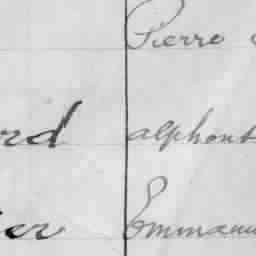 Pierre
rd alphons
er Emmanu